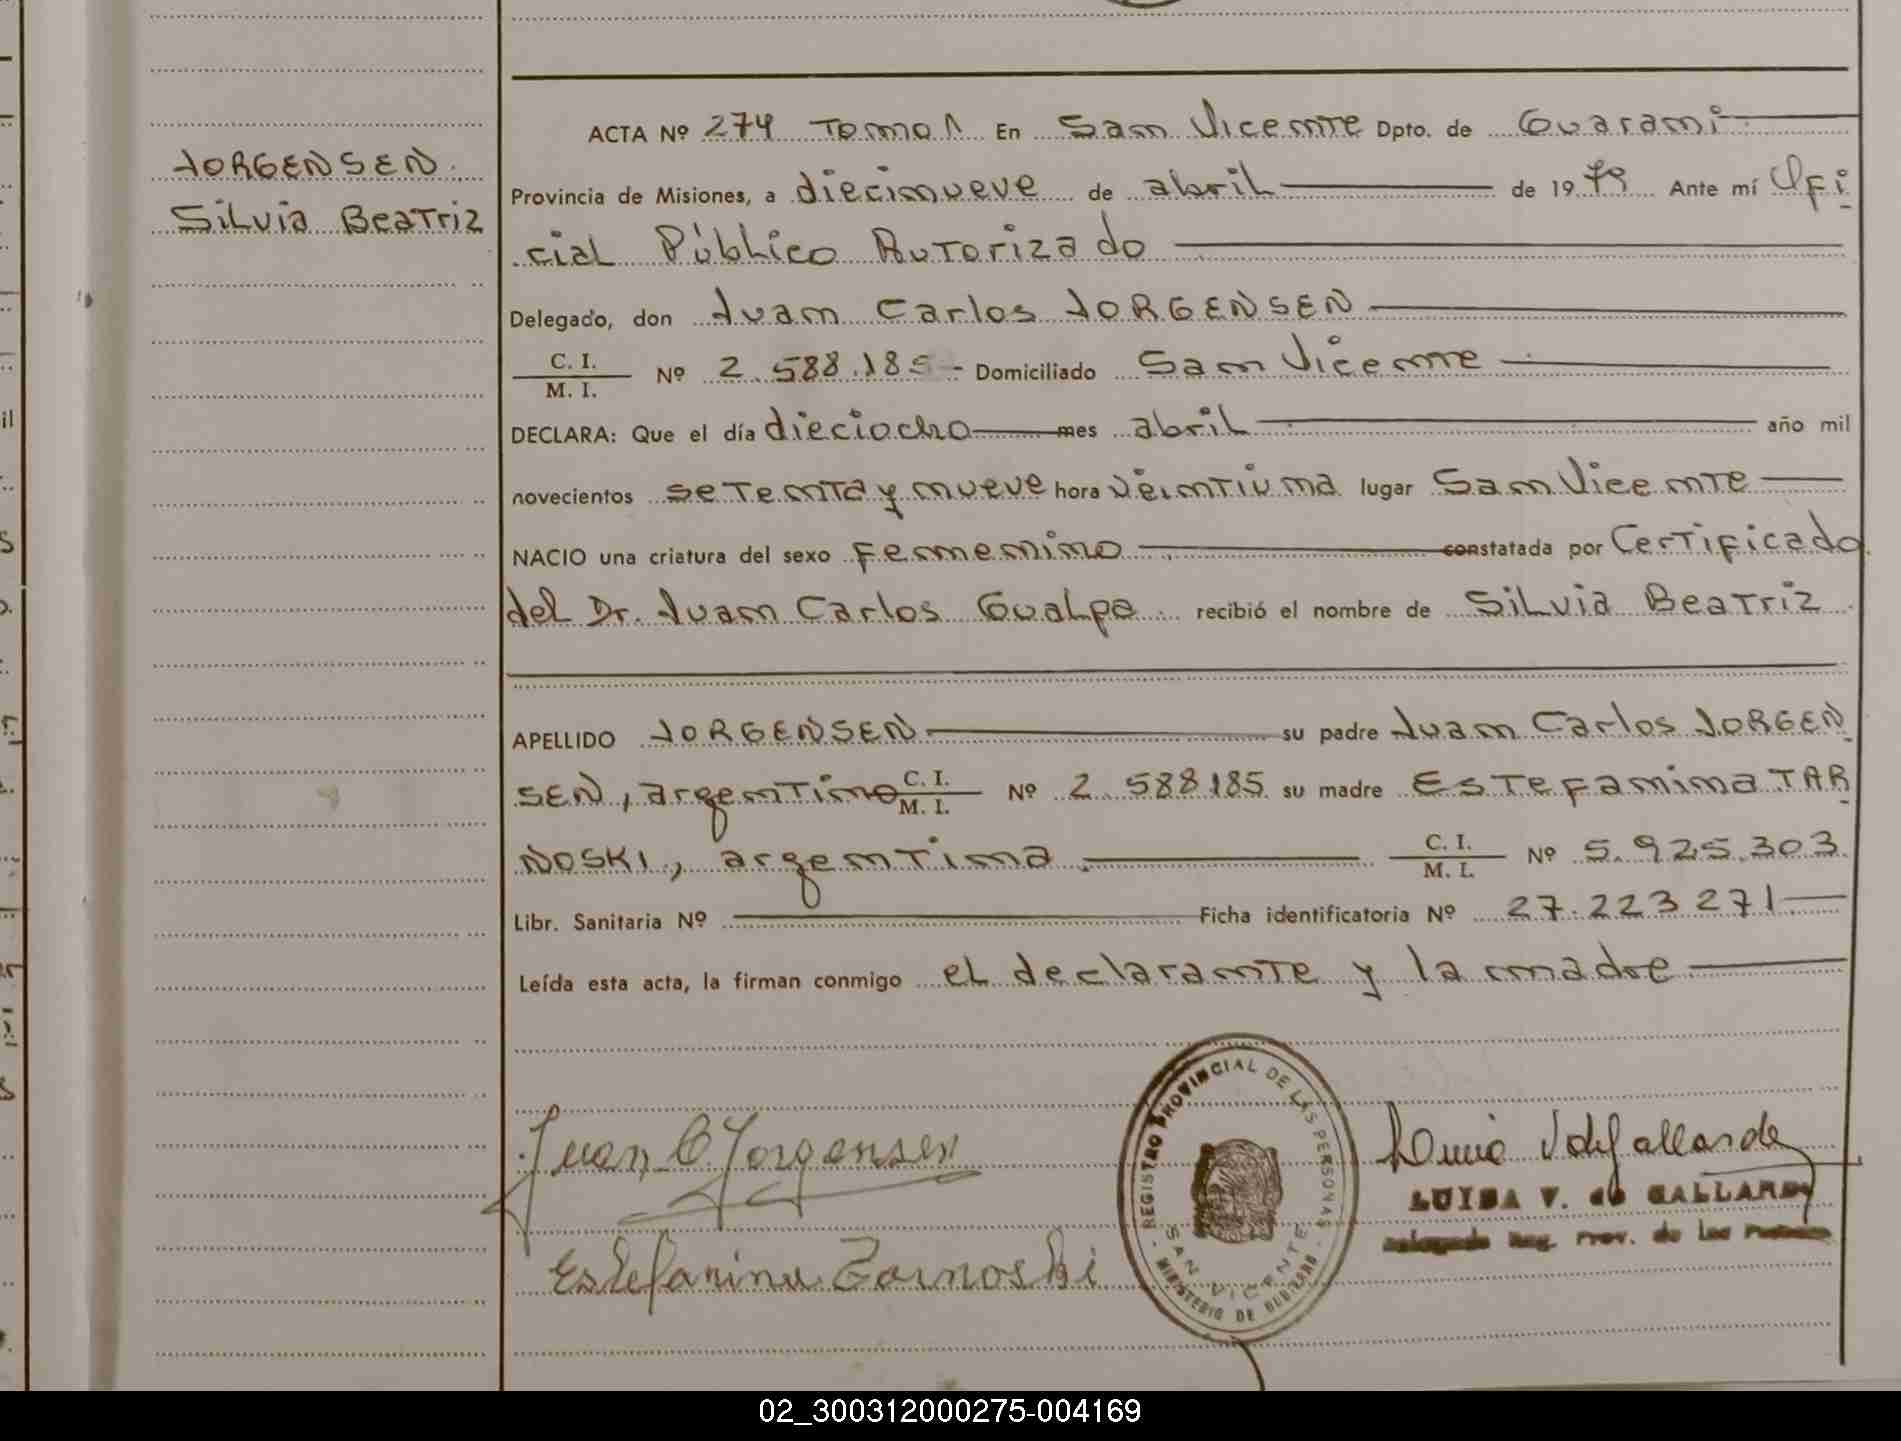 JORGENSEN
Silvia Beatriz
ACTA Nº 274 Tomo 1 En San Vicente Dpto. de Guarani
Provincia de Misiones, a diecinueve de abril de 1979 Ante mí Ofi
cial Público Autorizado
Delegado, don Juan Carlos JORGENSEN
C. I.
M. I. Nº 2.588.185 - Domiciliado San Vicente
DECLARA: Que el día dieciocho mes abril año mil
novecientos setenta y nueve hora veintiuna lugar San Vicente
NACIO una criatura del sexo femenino constatada por Certificado
del Dr. Juan Carlos Gualpa recibió el nombre de Silvia Beatriz
APELLIDO JORGENSEN su padre Juan Carlos JORGEN
SEN, argentino C. I. M. I. Nº 2.588185 su madre Estefanina TAR
NOSKI, argentina C. I. M. I. Nº 5.925.303
Libr. Sanitaria Nº Ficha identificatoria Nº 27.223 271
Leída esta acta, la firman conmigo el declarante y la madre
Juan C. Jorgensen
Estefanina Tarnoski
REGISTRO PROVINCIAL DE LAS PERSONAS
SAN VICENTE
MINISTERIO DE GOBIERNO
LUISA V. de GALLARDO
Delegada Reg. Prov. de las Personas
02_300312000275-004169